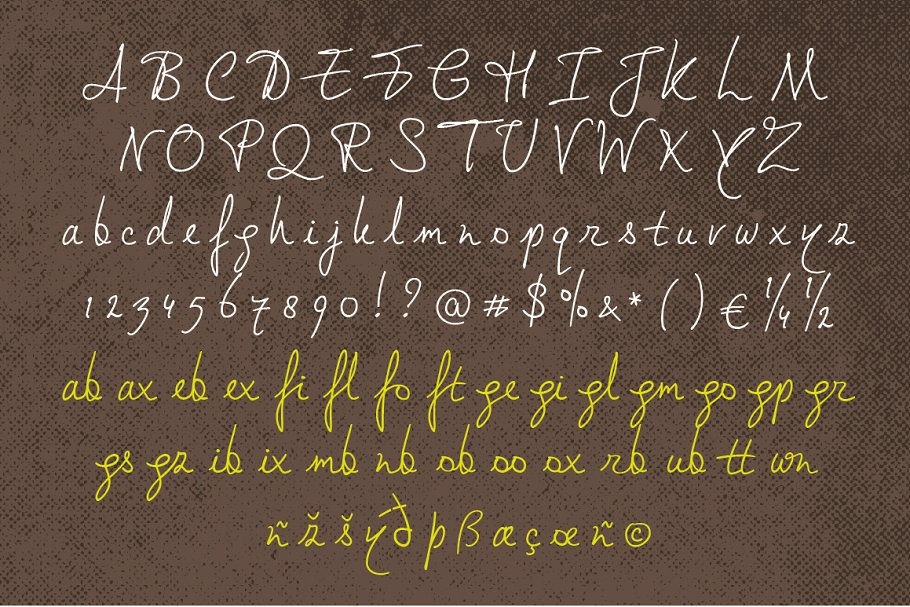 A B C D E F G H I J K L M
N O P Q R S T U V W X Y Z
a b c d e f g h i j k l m n o p q r s t u v w x y z
1 2 3 4 5 6 7 8 9 0 ! ? @ # $ % & * ( ) € ¼ ½
ab ax eb ex fi fl fo ft ge gi gl gm go gp gr
gs gz ib ix mb nb ob oo ox rb ub tt wn
ñ ž š ý ð þ ß æ ç œ ñ ©